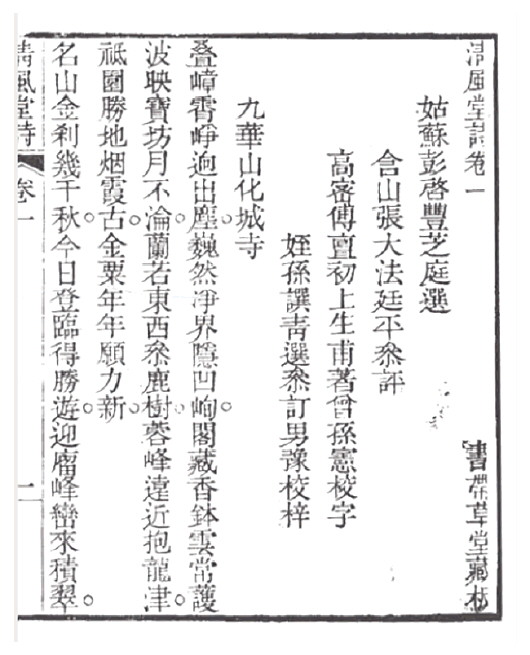 清風堂詩卷一 書帶草堂藏板
姑蘇彭啓豐芝庭選
含山張大法廷平叅評
高密傅亶初上生甫著曾孫憲校字
姪孫譔靑選叅訂男豫校梓
九華山化城寺
叠嶂霄崢逈出塵。巍然淨界隱凹峋。閣藏香鉢雲常護
波映寶坊月不淪。蘭若東西叅鹿樹。蓉峰遠近抱龍津。
祇園勝地烟霞古。金粟年年願力新。
名山金刹幾千秋。今日登臨得勝遊。迎廇峰巒來積翠。
清風堂詩 卷一 一